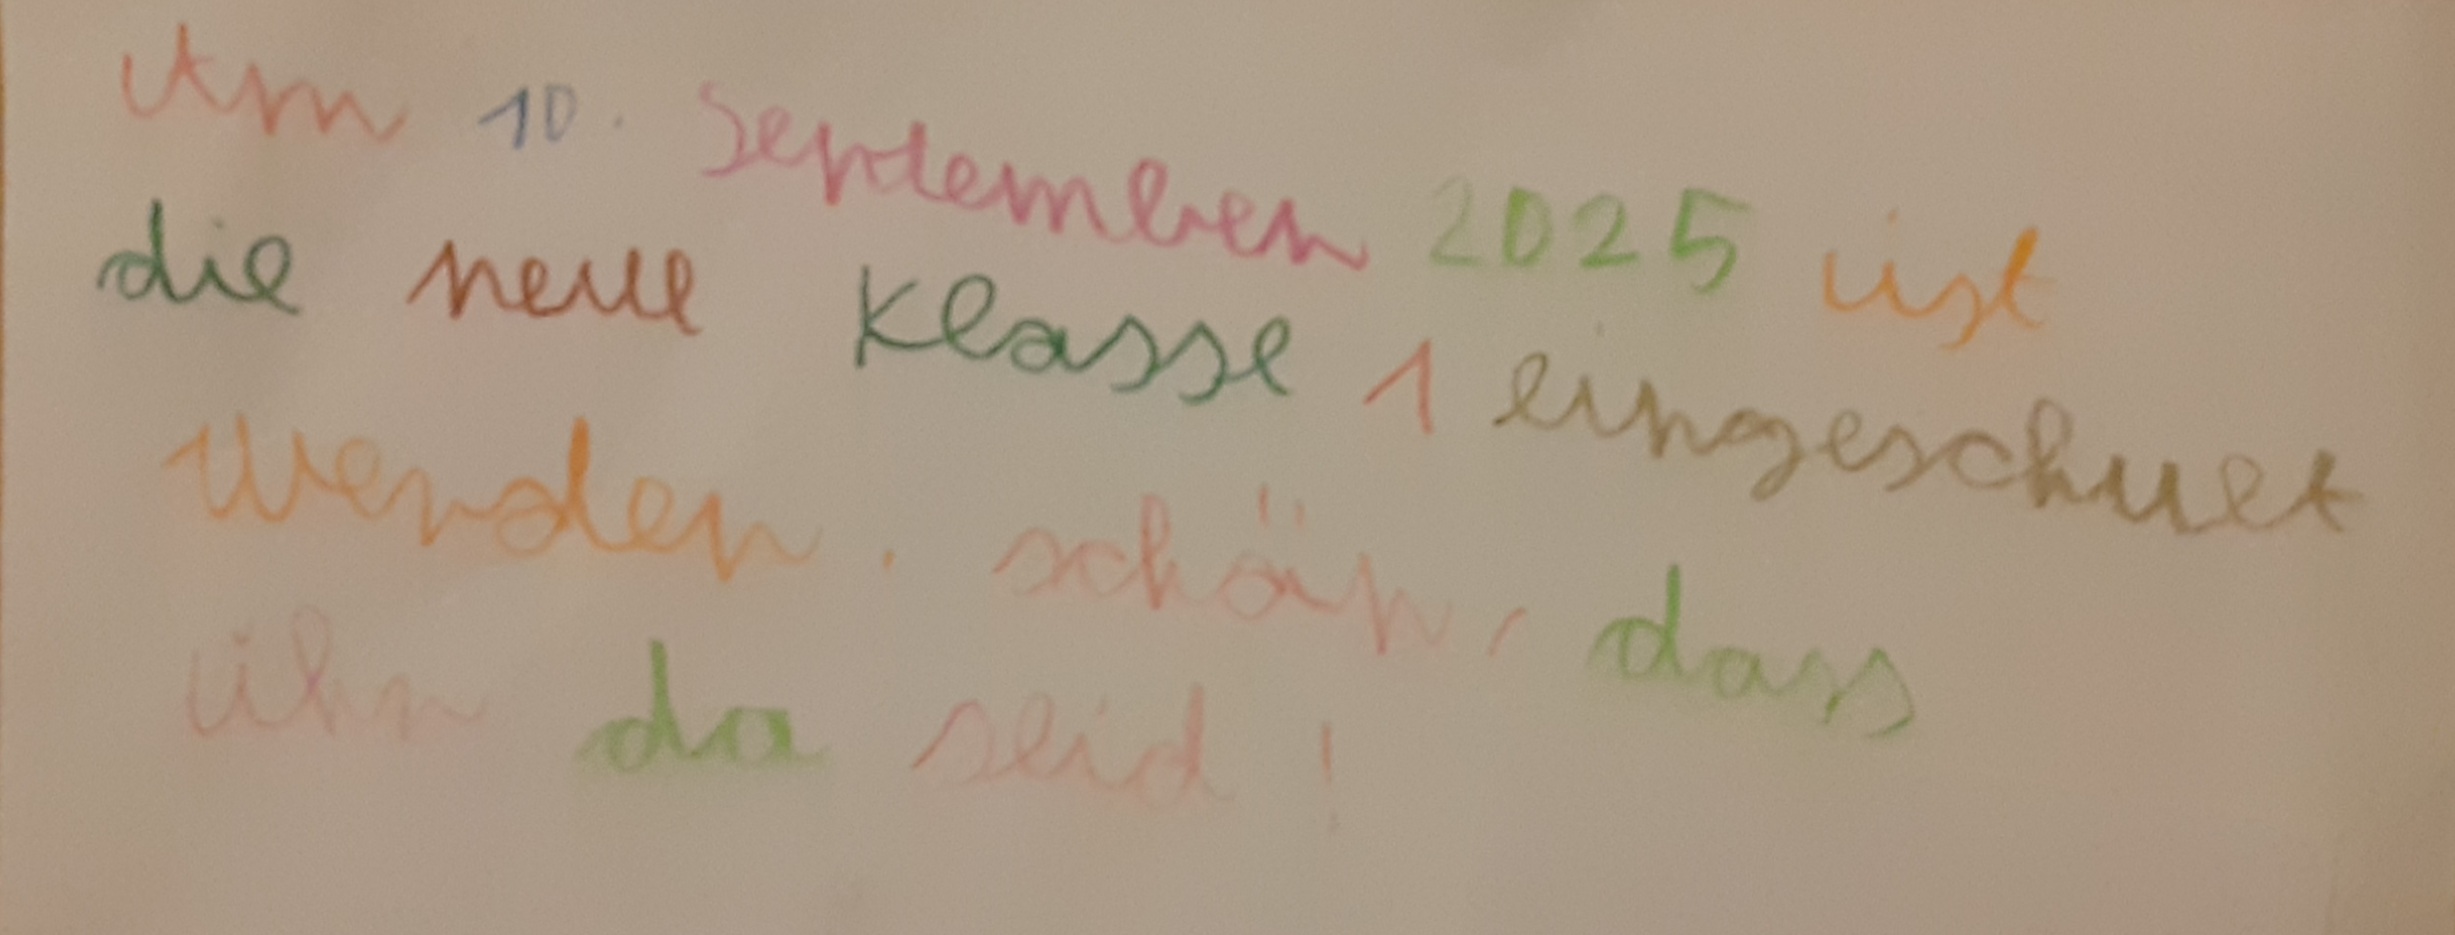 Am 10. September 2025 ist
die neue Klasse 1 eingeschuet
werden. schön, dass
ihr da seid!